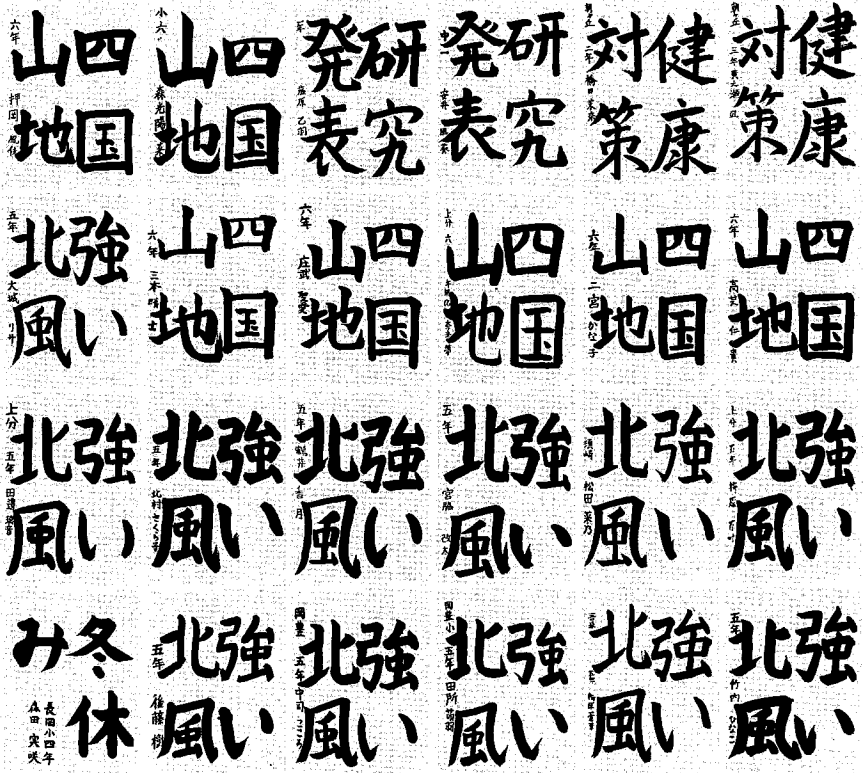 四国
山地
六年 押岡
四国
山地
小六 森光陽
研究
発表
藤原 乙羽
研究
発表
中一 安井
健康
対策
二年 橋田
健康
対策
三年
強い
北風
五年 大城
四国
山地
六年 三木
四国
山地
六年 庄武
四国
山地
上分 六
四国
山地
六年 二宮 かな子
四国
山地
六年
強い
北風
上分 五年
強い
北風
五年 北村 さくら
強い
北風
五年
強い
北風
五年 宮脇
強い
北風
須崎 松田 菜乃
強い
北風
上分 五年
冬休
み
長岡小四年
森田 実咲
強い
北風
五年 後藤 樹
強い
北風
岡豊 五年 中司 こころ
強い
北風
岡豊小 五年 田所
強い
北風
強い
北風
五年 竹内 ひなこ